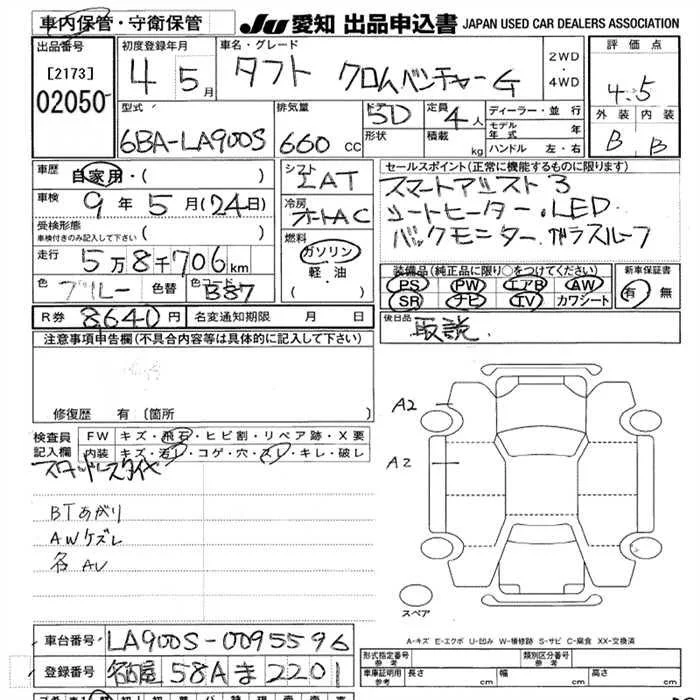 車内保管・守衛保管
JU 愛知 出品申込書 JAPAN USED CAR DEALERS ASSOCIATION
出品番号
[2173]
02050
初度登録年月
4 5月
車名・グレード
タフト クロムベンチャーG
2WD・4WD
評価点
4.5
外装 内装
B B
型式
6BA-LA900S
排気量
660 CC
ドア 5D
形状
定員 4人
積載 kg
ディーラー・並行
モデル年式 年
ハンドル 左・右
車歴
自家用・( )
車検 9年5月(24日)
受検形態
車検付きのみ記入して下さい ( )
走行 5万8千706km
色 ブルー 色替 色コード B87
シフト
IAT
冷房
オートAC
燃料
ガソリン
軽・油
・( )
セールスポイント(正常に機能するものに限ります)
スマートアシスト3
シートヒーター.LED
バックモニター.ガラスルーフ
装備品(純正品に限り○をつけてください)
PS PW エアB AW
SR ナビ TV カワシート
新車保証書
有・無
R券 8,640円 名変通知期限 月 日
後日品 取説.
注意事項申告欄(不具合内容等は具体的に記入して下さい)
修復歴 有〔箇所 〕
検査員記入欄
FW キズ・飛石・ヒビ割・リペア跡・X要
内装 キズ・汚レ・コゲ・穴・スレ・キレ・破レ
スタッドレスタイヤ
BTあがり
AWケズレ
各AU
A2
A2
スペア
A-キズ E-エクボ U-凹み W-補修跡 S-サビ C-腐食 XX-交換済
車台番号 LA900S-0095596
登録番号 名古屋 58A ま 2201
形式指定番号 参考
類別区分番号 参考
車庫証明用 参考 長さ cm 幅 cm 高さ cm